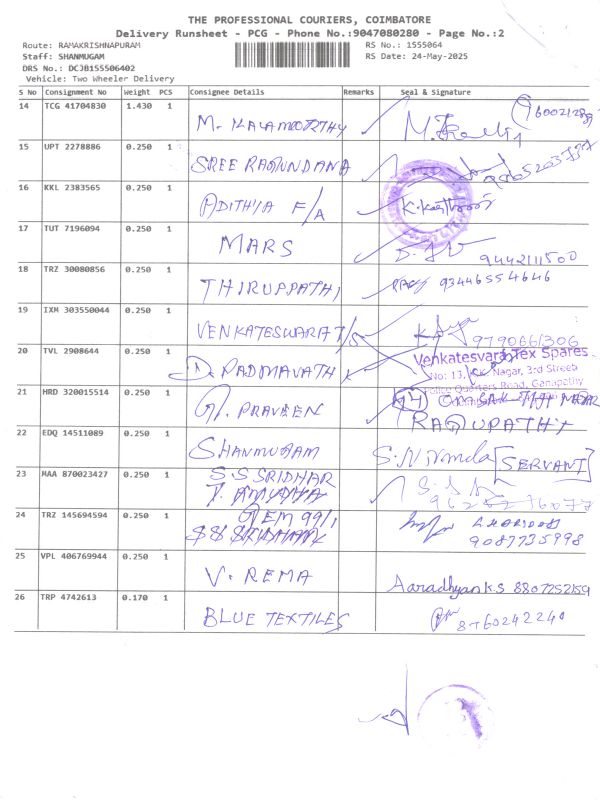 THE PROFESSIONAL COURIERS, COIMBATORE
Delivery Runsheet - PCG - Phone No.:9047080280 - Page No.:2
Route: RAMAKRISHNAPURAM RS No.: 1555064
Staff: SHANMUGAM RS Date: 24-May-2025
DRS No.: DCJB155506402
Vehicle: Two Wheeler Delivery
S No Consignment No Weight PCS Consignee Details Remarks Seal & Signature
14 TCG 41704830 1.430 1 M. KALAMOORTHY
15 UPT 2278886 0.250 1 SREE RAGUNDANA
16 KKL 2383565 0.250 1 ADITHYA F/A
17 TUT 7196094 0.250 1 MARS 9442111500
18 TRZ 30080856 0.250 1 THIRUPPATHI 9344655 4646
19 IXM 303550044 0.250 1 VENKATESWARA T/S 9790661306
Venkatesvara Tex Spares
No: 13, Nagar, 3rd Street
Police Quarters Road, Ganapathy
20 TVL 2908644 0.250 1 D. PADMAVATHY
21 HRD 320015514 0.250 1 PRAVEEN RAGUPATHY
22 EDQ 14511089 0.250 1 SHANMUGAM S. Nirmala [SERVANT]
23 MAA 870023427 0.250 1 S.S SRIDHAR
24 TRZ 145694594 0.250 1 GEM 99/1 9087735998
25 VPL 406769944 0.250 1 V. REMA Aaradhyan K.S 8807252159
26 TRP 4742613 0.170 1 BLUE TEXTILES 8760242240